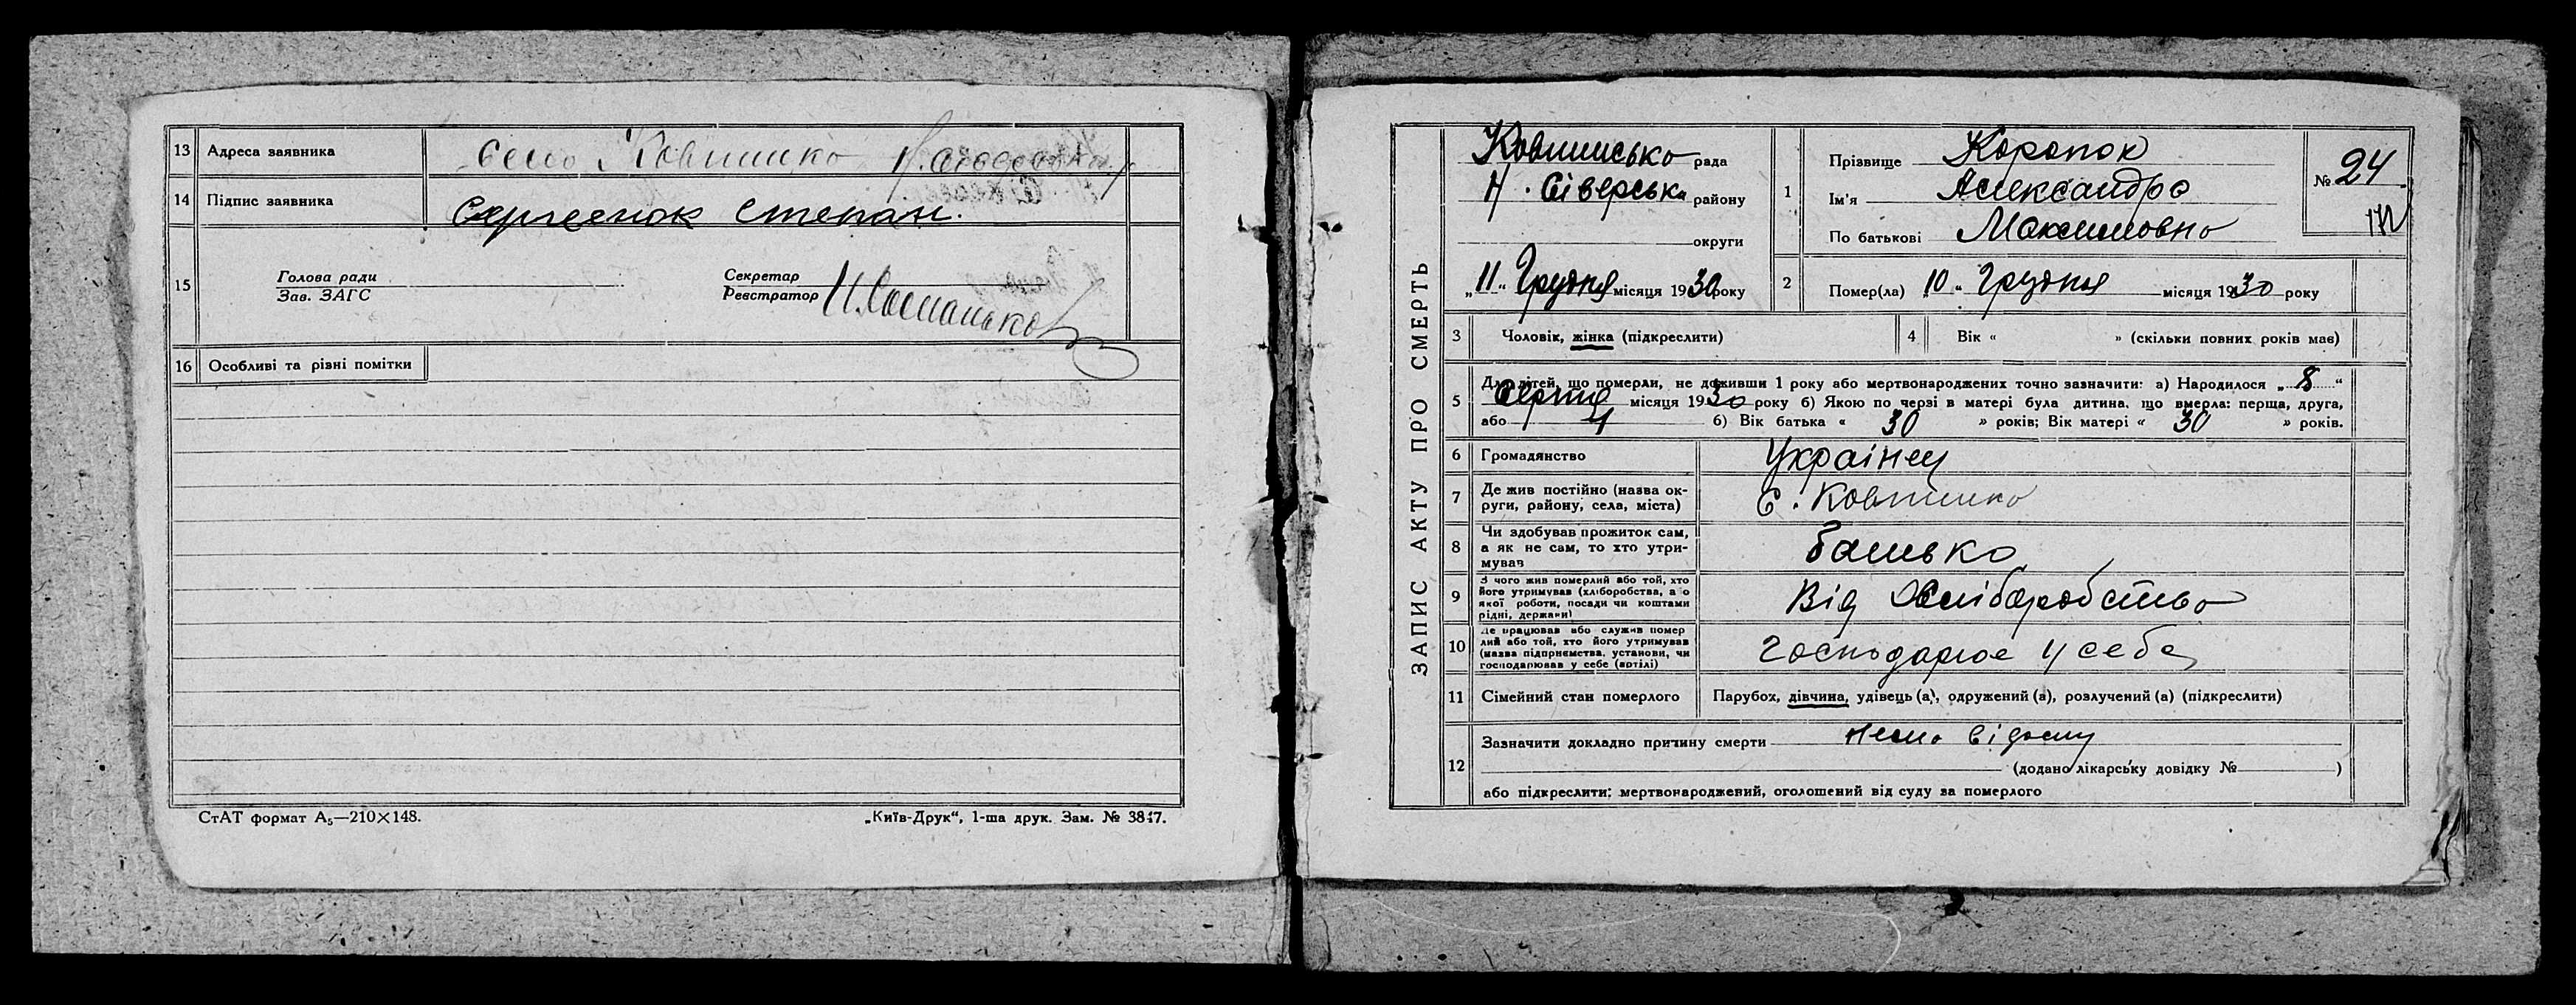 13 Адреса заявника Село Ковтинко Н.
14 Підпис заявника Сергеенок Степан.
15 Голова ради
Зав. ЗАГС
Секретар
Реєстратор
16 Особливі та різні помітки
СтАТ формат А5—210×148.
„Київ-Друк“, 1-ша друк. Зам. № 3847.
ЗАПИС АКТУ ПРО СМЕРТЬ
рада
Н. Сіверськ району
округи
„11“ Грудня місяця 1930 року
1 Прізвище
Ім'я Александра
По батькові Максимовна
№ 24
2 Помер(ла) „10“ Грудня місяця 1930 року
3 Чоловік, жінка (підкреслити)
4 Вік « » (скільки повних років має)
5 Для дітей, що померли, не доживши 1 року або мертвонароджених точно зазначити: а) Народилося „8“
Серпня місяця 1930 року б) Якою по черзі в матері була дитина, що вмерла: перша, друга,
або 4 б) Вік батька « 30 » років; Вік матері « 30 » років.
6 Громадянство Украінец
7 Де жив постійно (назва ок-
руги, району, села, міста) С. Ковтинко
8 Чи здобував прожиток сам,
а як не сам, то хто утри-
мував батько
9 З чого жив померлий або той, хто
його утримував (хліборобства, а о
якої роботи, посади чи коштами
рідні, держави) Від Хліборобства
10 Де працював або служив помер
лий або той, хто його утримував
(назва підприємства, установи, чи
господарював у себе (артілі) Господарює у себе
11 Сімейний стан померлого Парубох, дівчина, удівець (а), одружений (а), розлучений (а) (підкреслити)
12 Зазначити докладно причину смерті
(додано лікарську довідку № )
або підкреслити: мертвонароджений, оголошений від суду за померлого